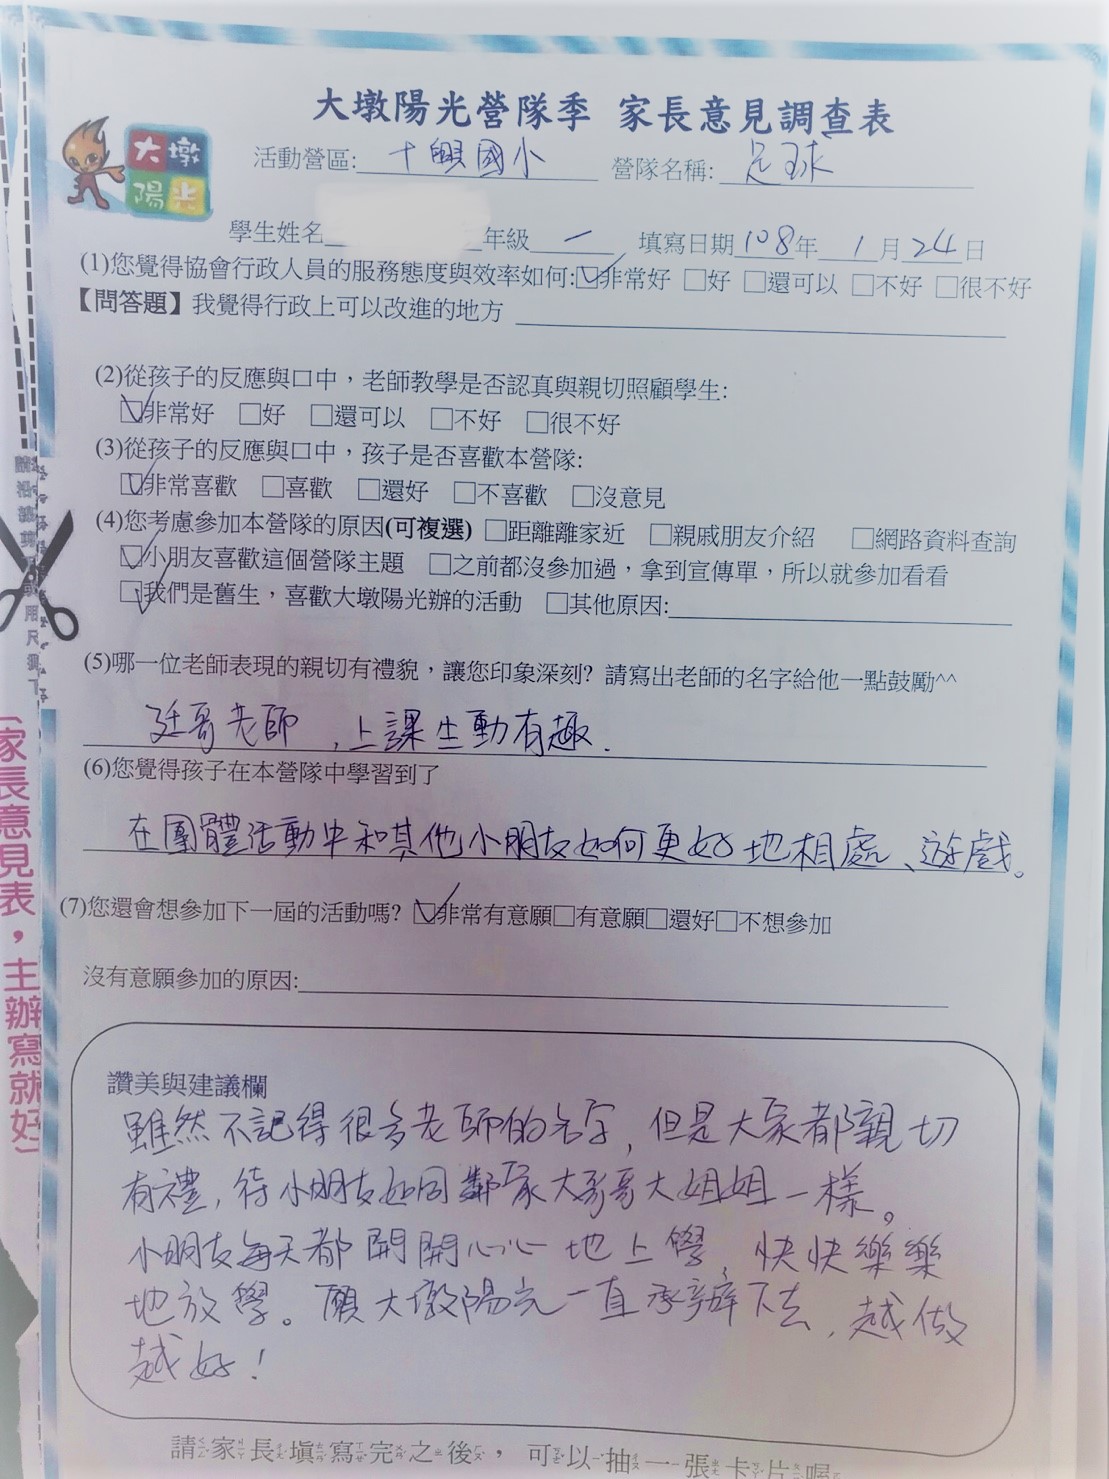 大墩陽光營隊季 家長意見調查表
大墩
陽光
活動營區: 十興國小 營隊名稱: 足球
學生姓名 年級 一 填寫日期 108年 1月24日
(1)您覺得協會行政人員的服務態度與效率如何:☑非常好 □好 □還可以 □不好 □很不好
【問答題】我覺得行政上可以改進的地方
(2)從孩子的反應與口中，老師教學是否認真與親切照顧學生:
☑非常好 □好 □還可以 □不好 □很不好
(3)從孩子的反應與口中，孩子是否喜歡本營隊:
☑非常喜歡 □喜歡 □還好 □不喜歡 □沒意見
(4)您考慮參加本營隊的原因(可複選) □距離離家近 □親戚朋友介紹 □網路資料查詢
☑小朋友喜歡這個營隊主題 □之前都沒參加過，拿到宣傳單，所以就參加看看
☑我們是舊生，喜歡大墩陽光辦的活動 □其他原因:
(5)哪一位老師表現的親切有禮貌，讓您印象深刻? 請寫出老師的名字給他一點鼓勵^^
廷哥老師 ，上課生動有趣.
(6)您覺得孩子在本營隊中學習到了
在團體活動中和其他小朋友如何更好地相處、遊戲。
(7)您還會想參加下一屆的活動嗎? ☑非常有意願□有意願□還好□不想參加
沒有意願參加的原因:
讚美與建議欄
雖然不記得很多老師的名字，但是大家都親切
有禮，待小朋友如同鄰家大哥哥大姐姐一樣。
小朋友每天都開開心心地上學，快快樂樂
地放學。願大墩陽光一直承辦下去，越做
越好！
請家長填寫完之後，可以抽一張卡片喔
家長意見表，主辦寫就好